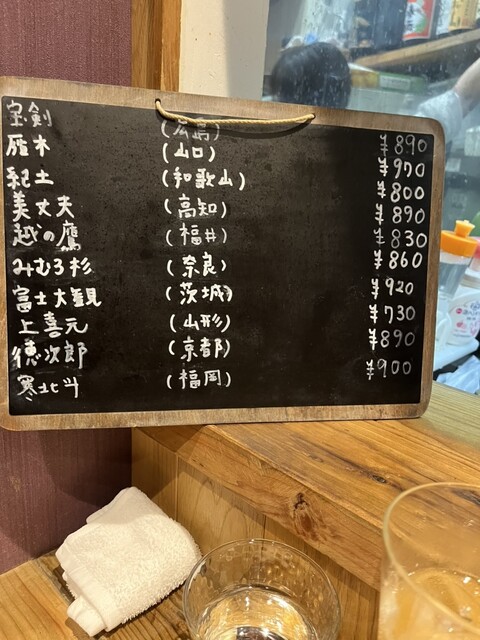 宝剣 (広島) ¥890
雁木 (山口) ¥970
紀土 (和歌山) ¥800
美丈夫 (高知) ¥890
越の鷹 (福井) ¥830
みむろ杉 (奈良) ¥860
富士大観 (茨城) ¥920
上喜元 (山形) ¥730
徳次郎 (京都) ¥890
寒北斗 (福岡) ¥900